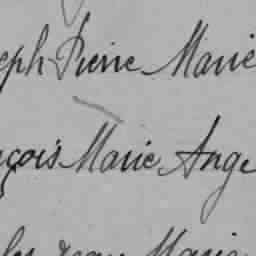 eph Pierre Marie
çois Marie Ange
Marie